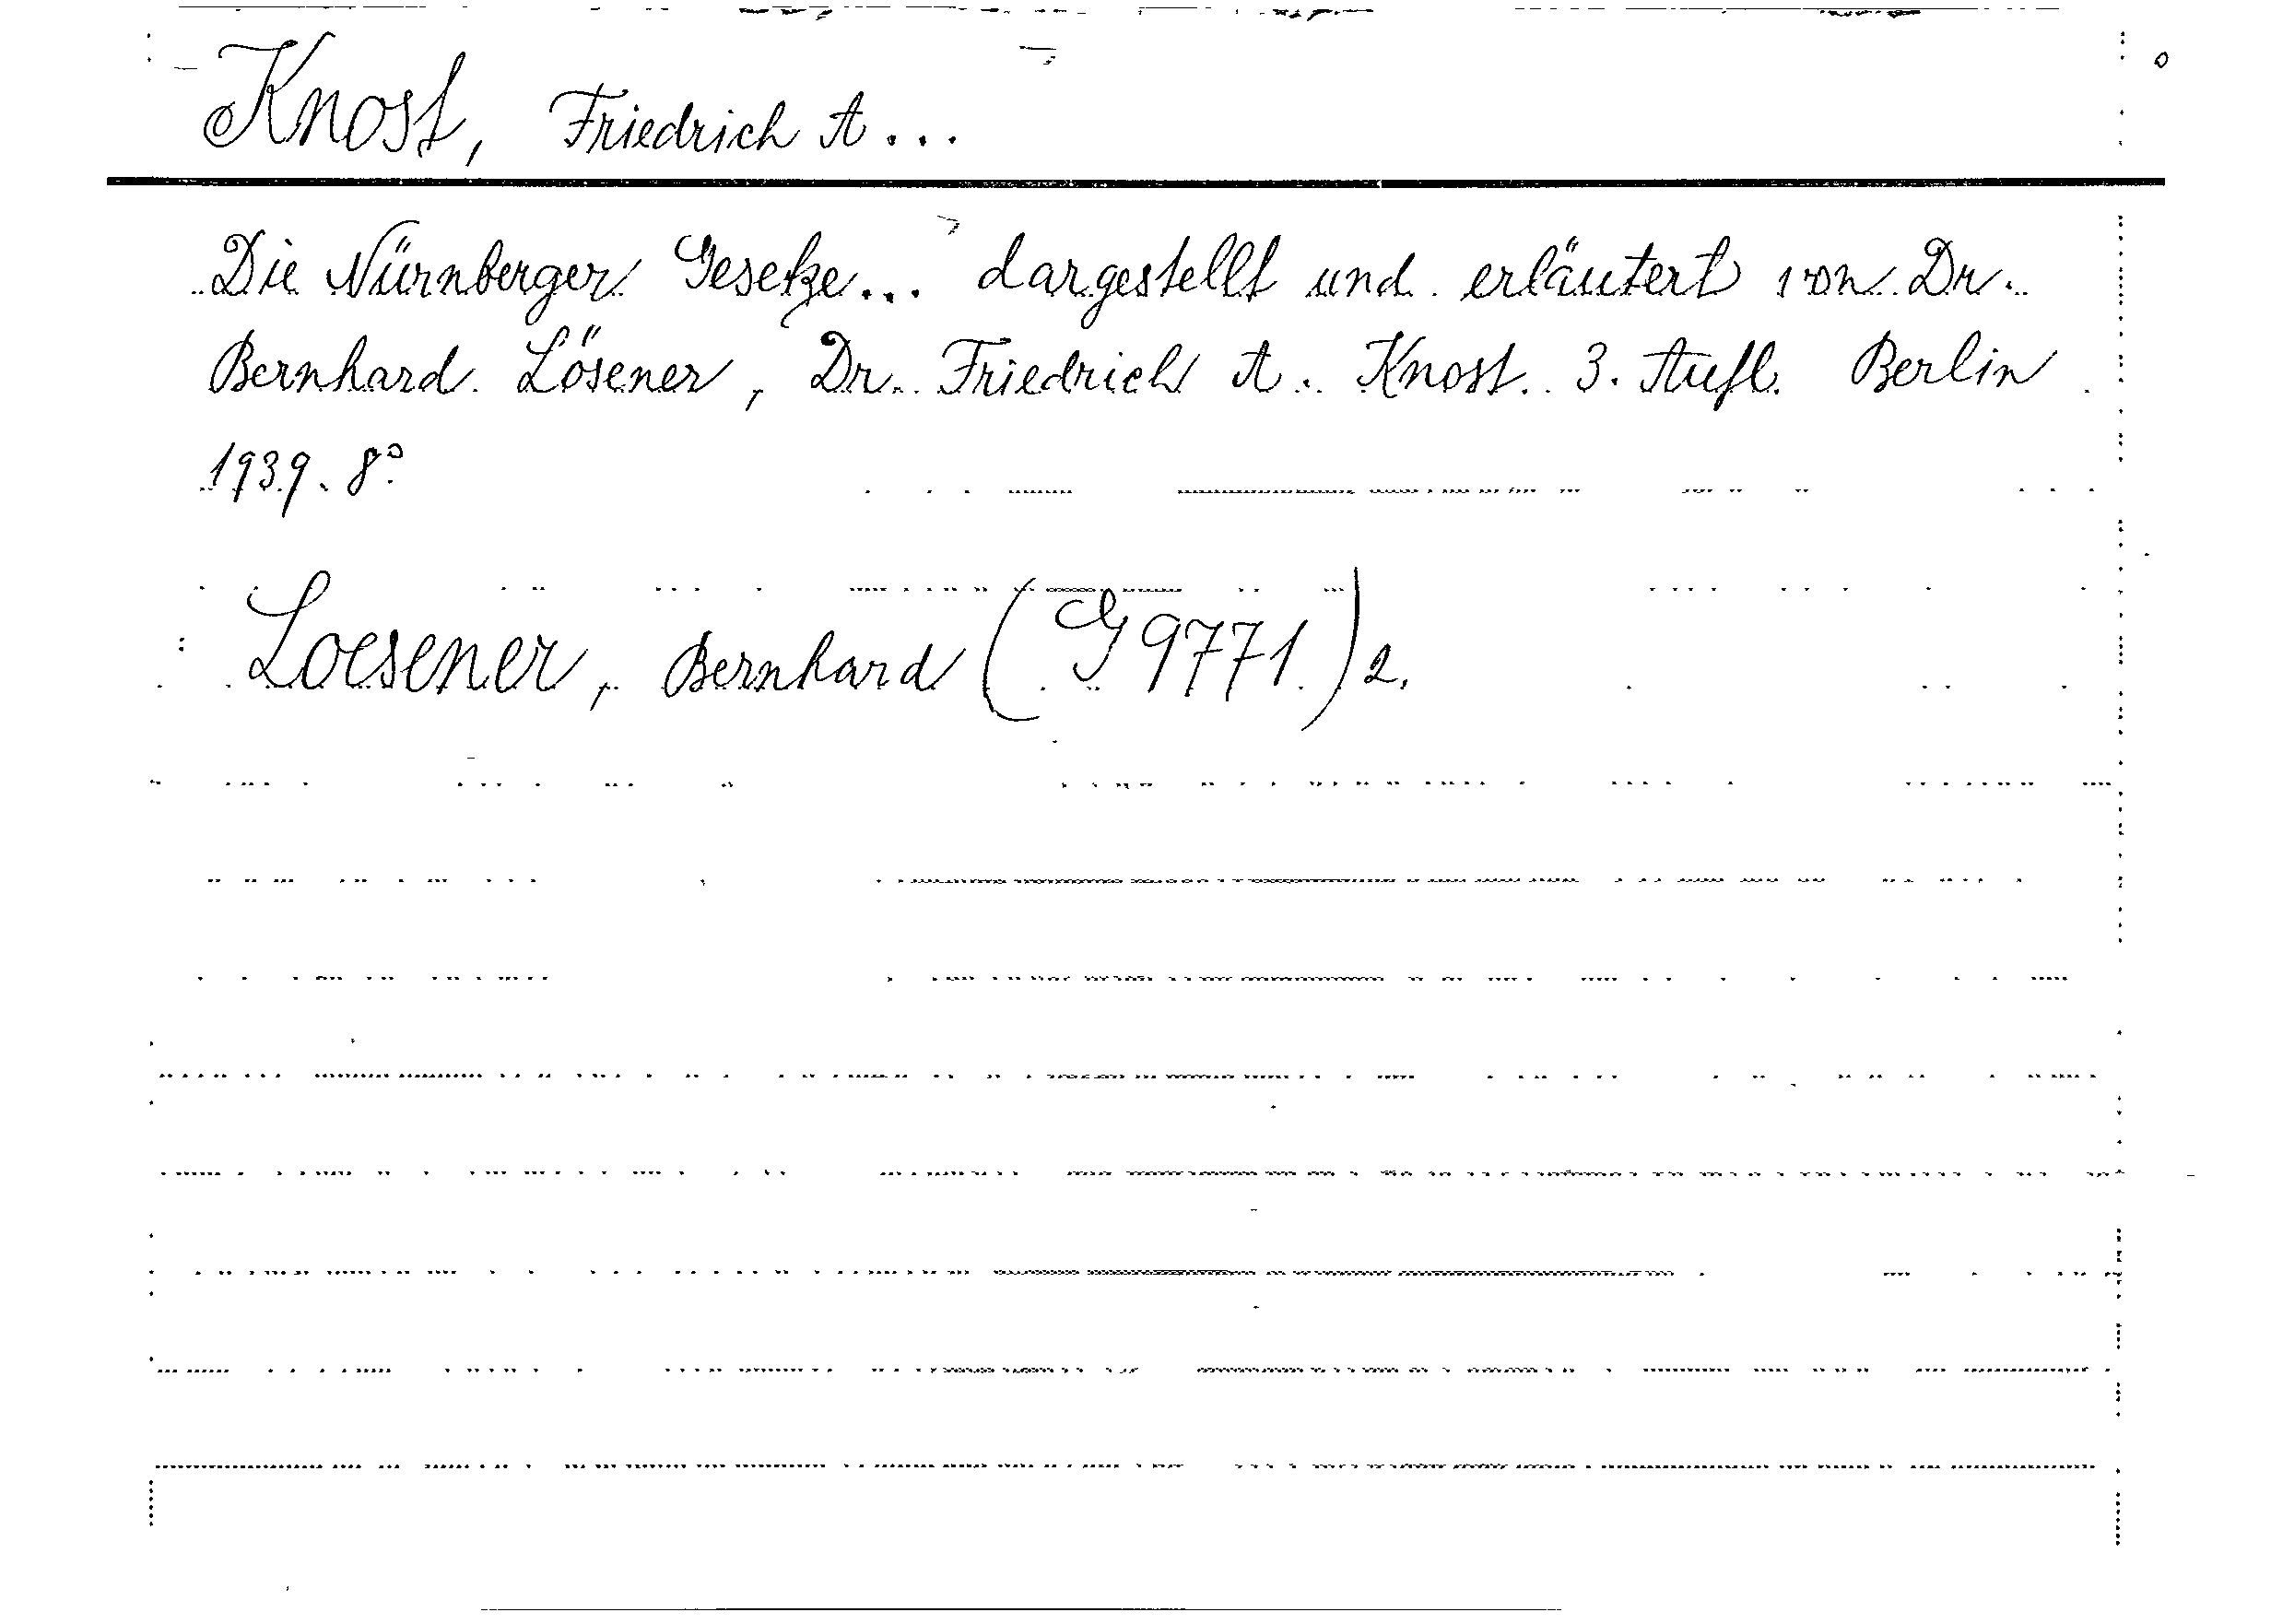 Knost, Friedrich A...
Die Nürnberger Gesetze... dargestellt und erläutert von Dr.
Bernhard Lösener, Dr. Friedrich A. Knost. 3. Aufl. Berlin
1939. 8°
Loesener, Bernhard (G 9771) 2.